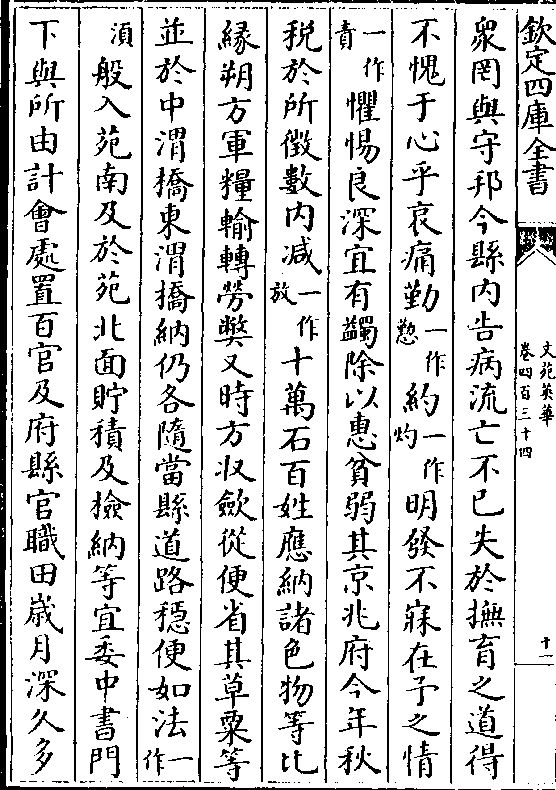 欽定四庫全書
文苑英華
卷四百三十四
十一
衆罔與守邦今縣内告病流亡不已失於撫育之道得
不愧于心乎哀痛勤一作懃約一作灼明發不寐在予之情
一作責懼惕良深宜有蠲除以惠貧弱其京兆府今年秋
税於所徵數内减一作放十萬石百姓應納諸色物等比
緣朔方軍糧輸轉勞弊又時方収歛從便省其草粟等
並於中渭橋東渭橋納仍各隨當縣道路穩便如法一作
湏般入苑南及於苑北面貯積及撿納等宜委中書門
下與所由計會處置百官及府縣官職田歳月深久多